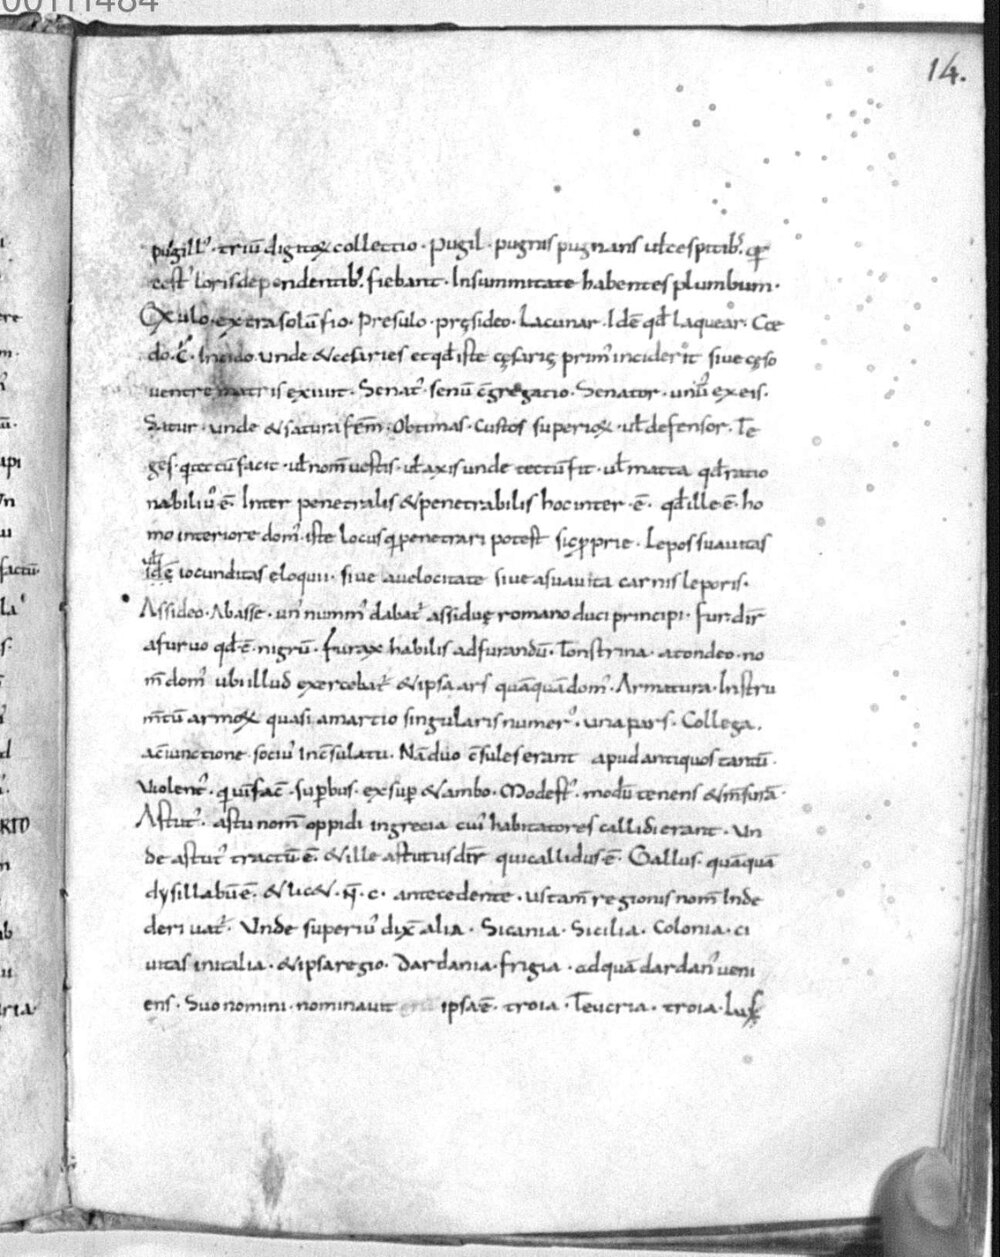 14.
pugill᾽· triū digitoꝝ collectio · Pugil · pugnis pugnans uł cespitib᾽. qr
cest᾽ loris dependentib᾽. fiebant · In summitate habentes plumbum ·
Exulo · extra solū fio · Presulo · pręsideo · Lacunar · Idē qđ laquear · Ce
do · c̄ · Incido unde & cesaries et qđ iste cęsaris prim᾽ inciderit siue cęso
uentre matris exiuit · Senat᾽ · senū c̄gregatio · Senator · un᾽ ex eis ·
Satur · unde & satura fem̄ · Obtimas · custos superioꝝ · uł defensor · Te
ges · q tectū facit · uł nom̄ uestis · uł axis unde tectū fit · uł matta qđ ratio
nabiliu᾽ ē · Inter penetralis & penetrabilis hoc inter · ē · qđ ille ē · ho
mo interiore dom᾽ · iste locus q penetrari potest sic ꝓprie · Lepos suauitas
uł idē iocunditas eloquii · siue a uelocitate siue a suauita carnis leporis ·
Assideo · Abasse · un᾽ numm᾽ dabat᾽ assiduę romano duci principi · fur · dir̄
a furuo qđ ē · nigrū · furax habilis ad furandū · Tonstrina · a tondeo · no
m̄ dom᾽ ubi illud exercebat᾽ & ipsa ars quāquā dom᾽ · Armatura · Instru
m̄tū armoꝝ quasi a martio singularis numer᾽ · una pars · Collega ·
ac̄iunctione · soci᾽ in c̄sulatu · Nā duo c̄sules erant apud antiquos tantū ·
Violent᾽ · q uim fac̄ · supbus · ex sup & ambo · Modest᾽ · modū tenens & m̄surā ·
Astut᾽ · astu nom̄ oppidi in grecia cui᾽ habitatores callidi erant · Un
de astut᾽ tractū ē · & ille astutus dir̄ qui callidus ē · Gallus · quāquā
dysillabū ē · & lic& · n̄ · c · antecedente · us tam̄ regionis nom̄ Inde
deriuat᾽ · Unde superiu᾽ dix̄ alia · Sicania · Sicilia · Colonia · ci
uitas in italia · & ipsa regio · Dardania · frigia · ad quā dardan᾽ ueni
ens · Suo nomini · nominauit ipsa ē · troia · Teucria · troia · Lus